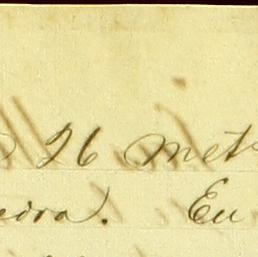 26 met
edra. Eu